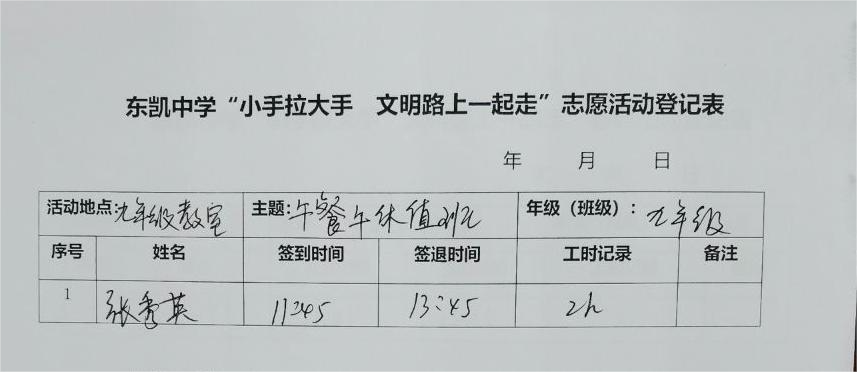 东凯中学“小手拉大手 文明路上一起走”志愿活动登记表
年 月 日
活动地点:九年级教室 主题:午餐午休值班 年级（班级）：九年级
序号 姓名 签到时间 签退时间 工时记录 备注
1 张秀英 11:45 13:45 2h